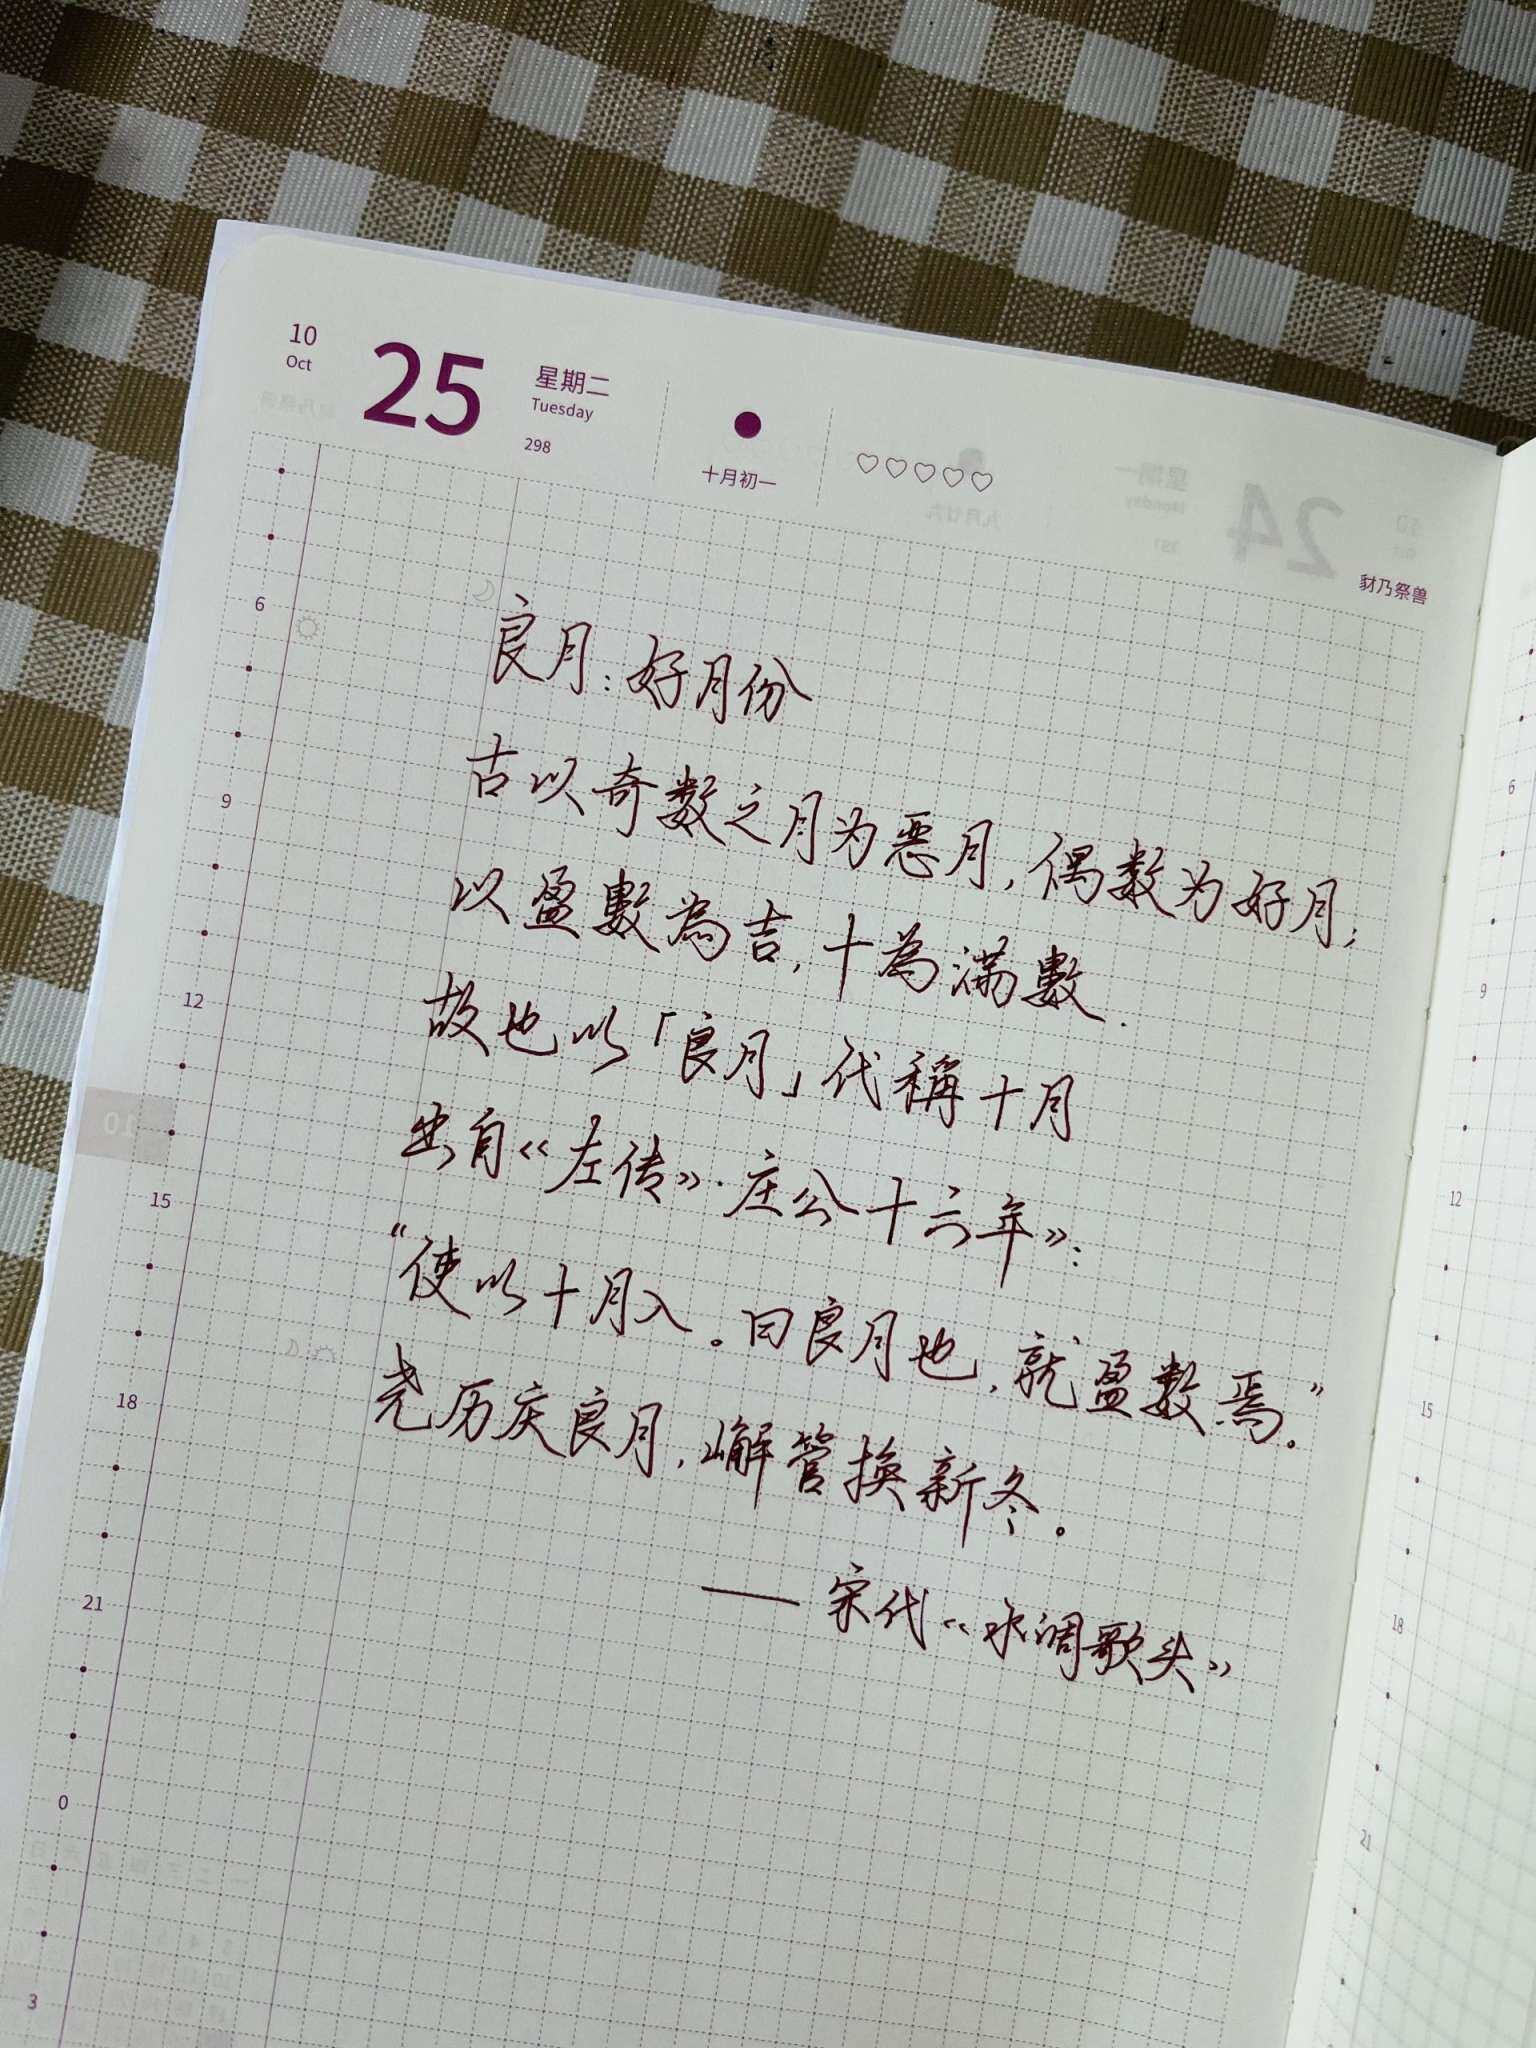 10
Oct
25
星期二
Tuesday
298
十月初一
豺乃祭兽
良月：好月份
古以奇数之月为恶月，偶数为好月；
以盈數為吉，十為滿數.
故也以「良月」代稱十月
出自《左传》·庄公十六年》：
“使以十月入。曰良月也，就盈数焉。”
尧历庆良月，嶰管换新冬。
—— 宋代《水调歌头》
6
9
12
15
18
21
0
3
6
9
12
15
18
21